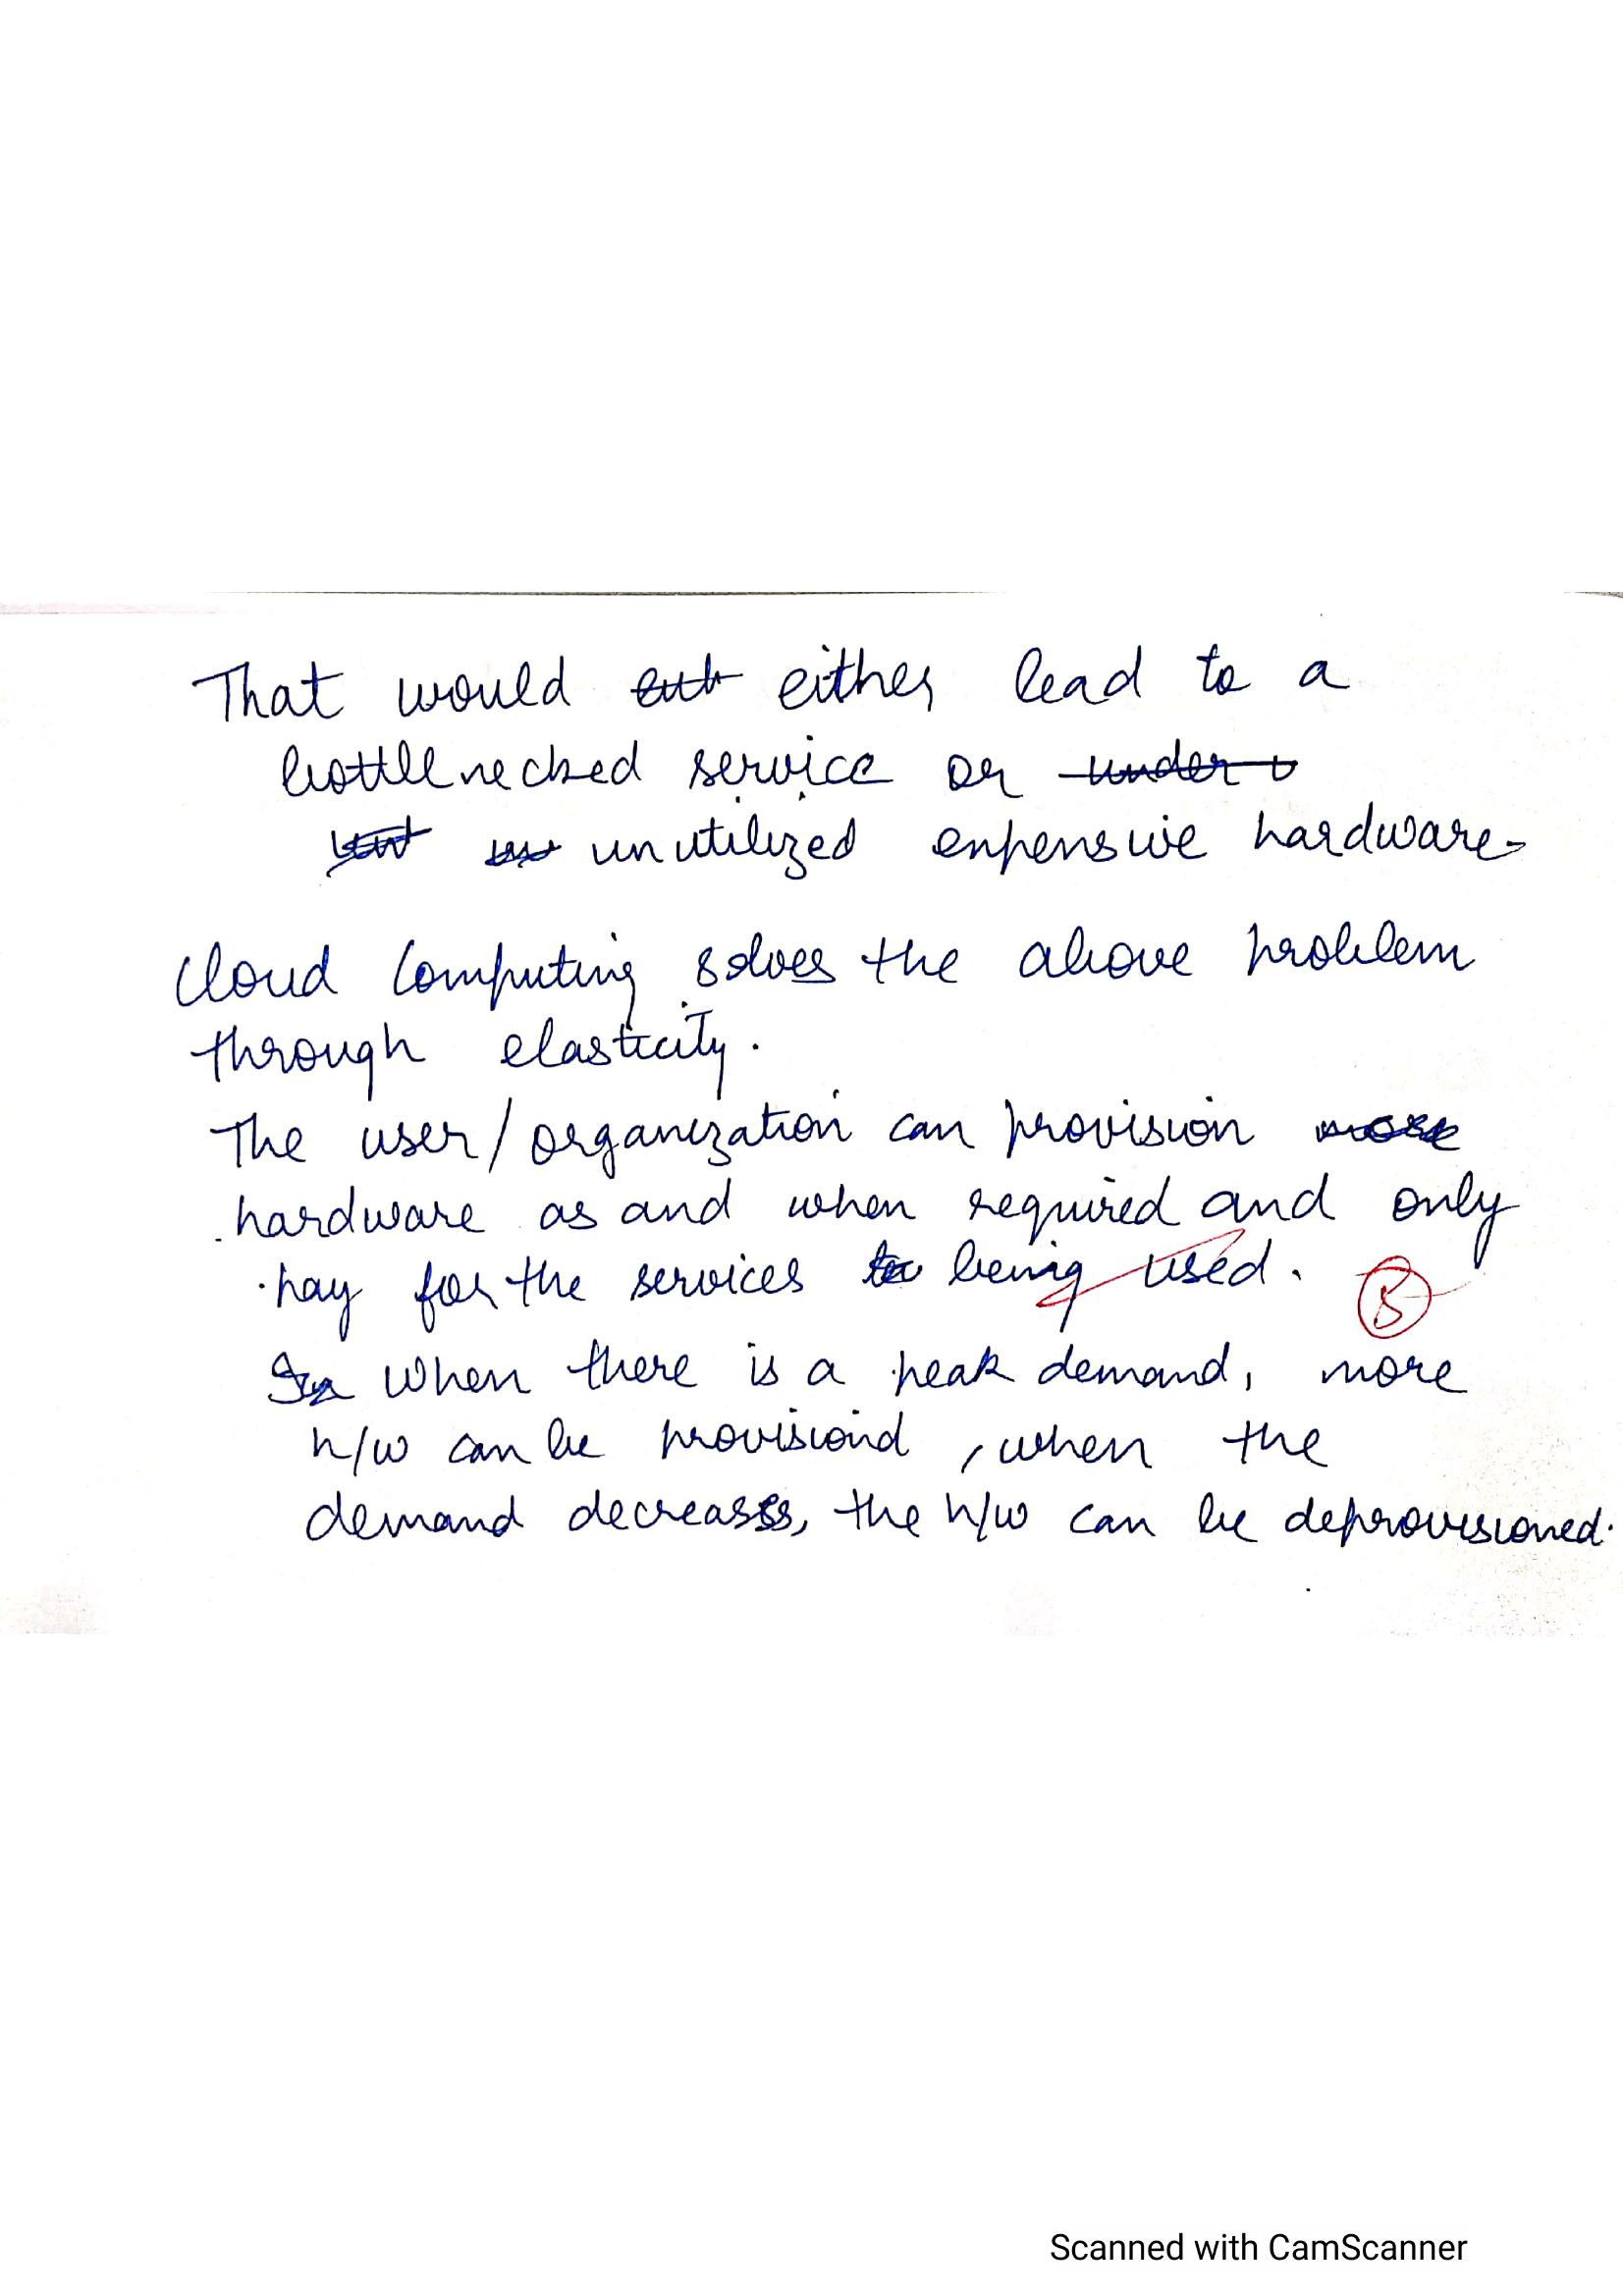 That would either lead to a
bottlenecked service or under u
unutilized expensive hardware.
Cloud Computing solves the above problem
through elasticity.
The user/organization can provision more
hardware as and when required and only
pay for the services being used.
When there is a peak demand, more
h/w can be provisiond, when the
demand decreases, the h/w can be deprovisioned.
Scanned with CamScanner